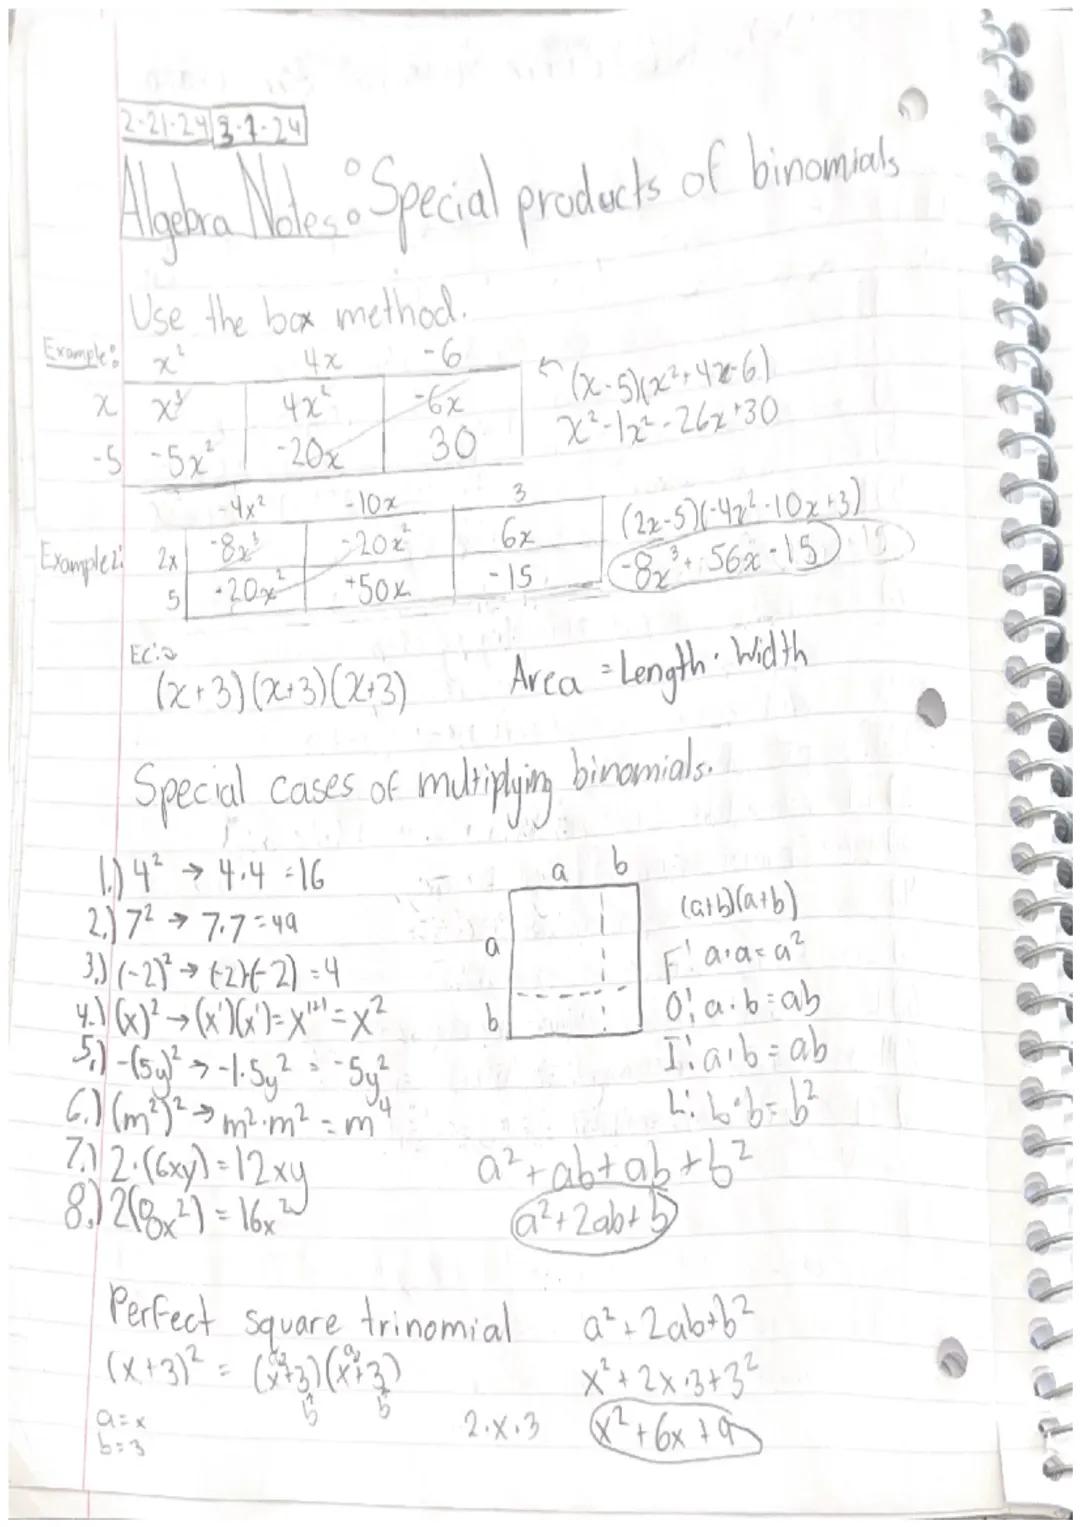 2-21-24 3-7-24
Algebra Notes: Special products of binomials
Use the box method.
Example:
x² 4x -6
x x³ 4x² -6x
-5 -5x² -20x 30
(x-5)(x²+4x-6)
x²-1x²-26x+30
Example 2:
-4x² -10x 3
2x -8x³ -20x² 6x
5 +20x² +50x -15
(2x-5)(-4x²-10x+3)
-8x³+56x-15
EC:
(x+3)(x+3)(x+3) Area = Length · Width
Special cases of multiplying binomials.
1.) 4² → 4·4 = 16
2.) 7² → 7·7 = 49
3.) (-2)² → (-2)(-2) = 4
4.) (x)² → (x¹)(x¹) = x¹⁺¹ = x²
5.) -(5y)² → -1·5y² = -5y²
6.) (m²)² → m²·m² = m⁴
7.) 2·(6xy) = 12xy
8.) 2(8x²) = 16x²
a b
a
b
(a+b)(a+b)
F: a·a = a²
O: a·b = ab
I: a·b = ab
L: b·b = b²
a²+ab+ab+b²
a²+2ab+b
Perfect square trinomial a²+2ab+b²
(x+3)² = (x+3)(x+3) x²+2x·3+3²
a a
b b
a=x
b=3
2·x·3 x²+6x+9